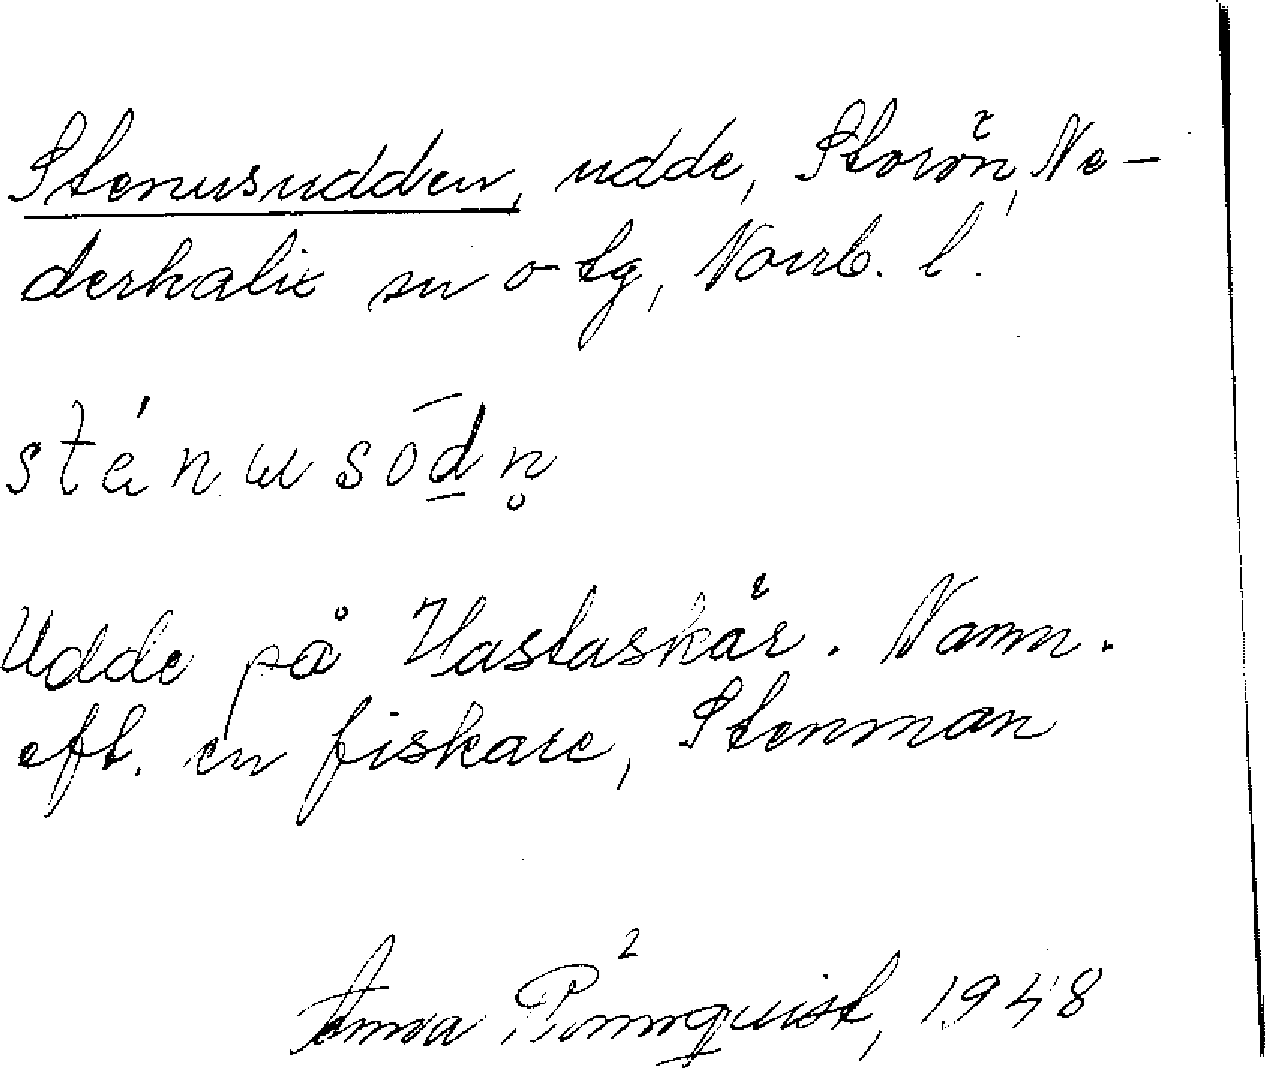 Stenusudden, udde, Storön, Ne-
derkalix sn o tg, Norrb. l.
sténusōdn̥
Udde på Hastaskär. Namn.
eft. en fiskare, Stenman
Anna Rönnquist, 1948